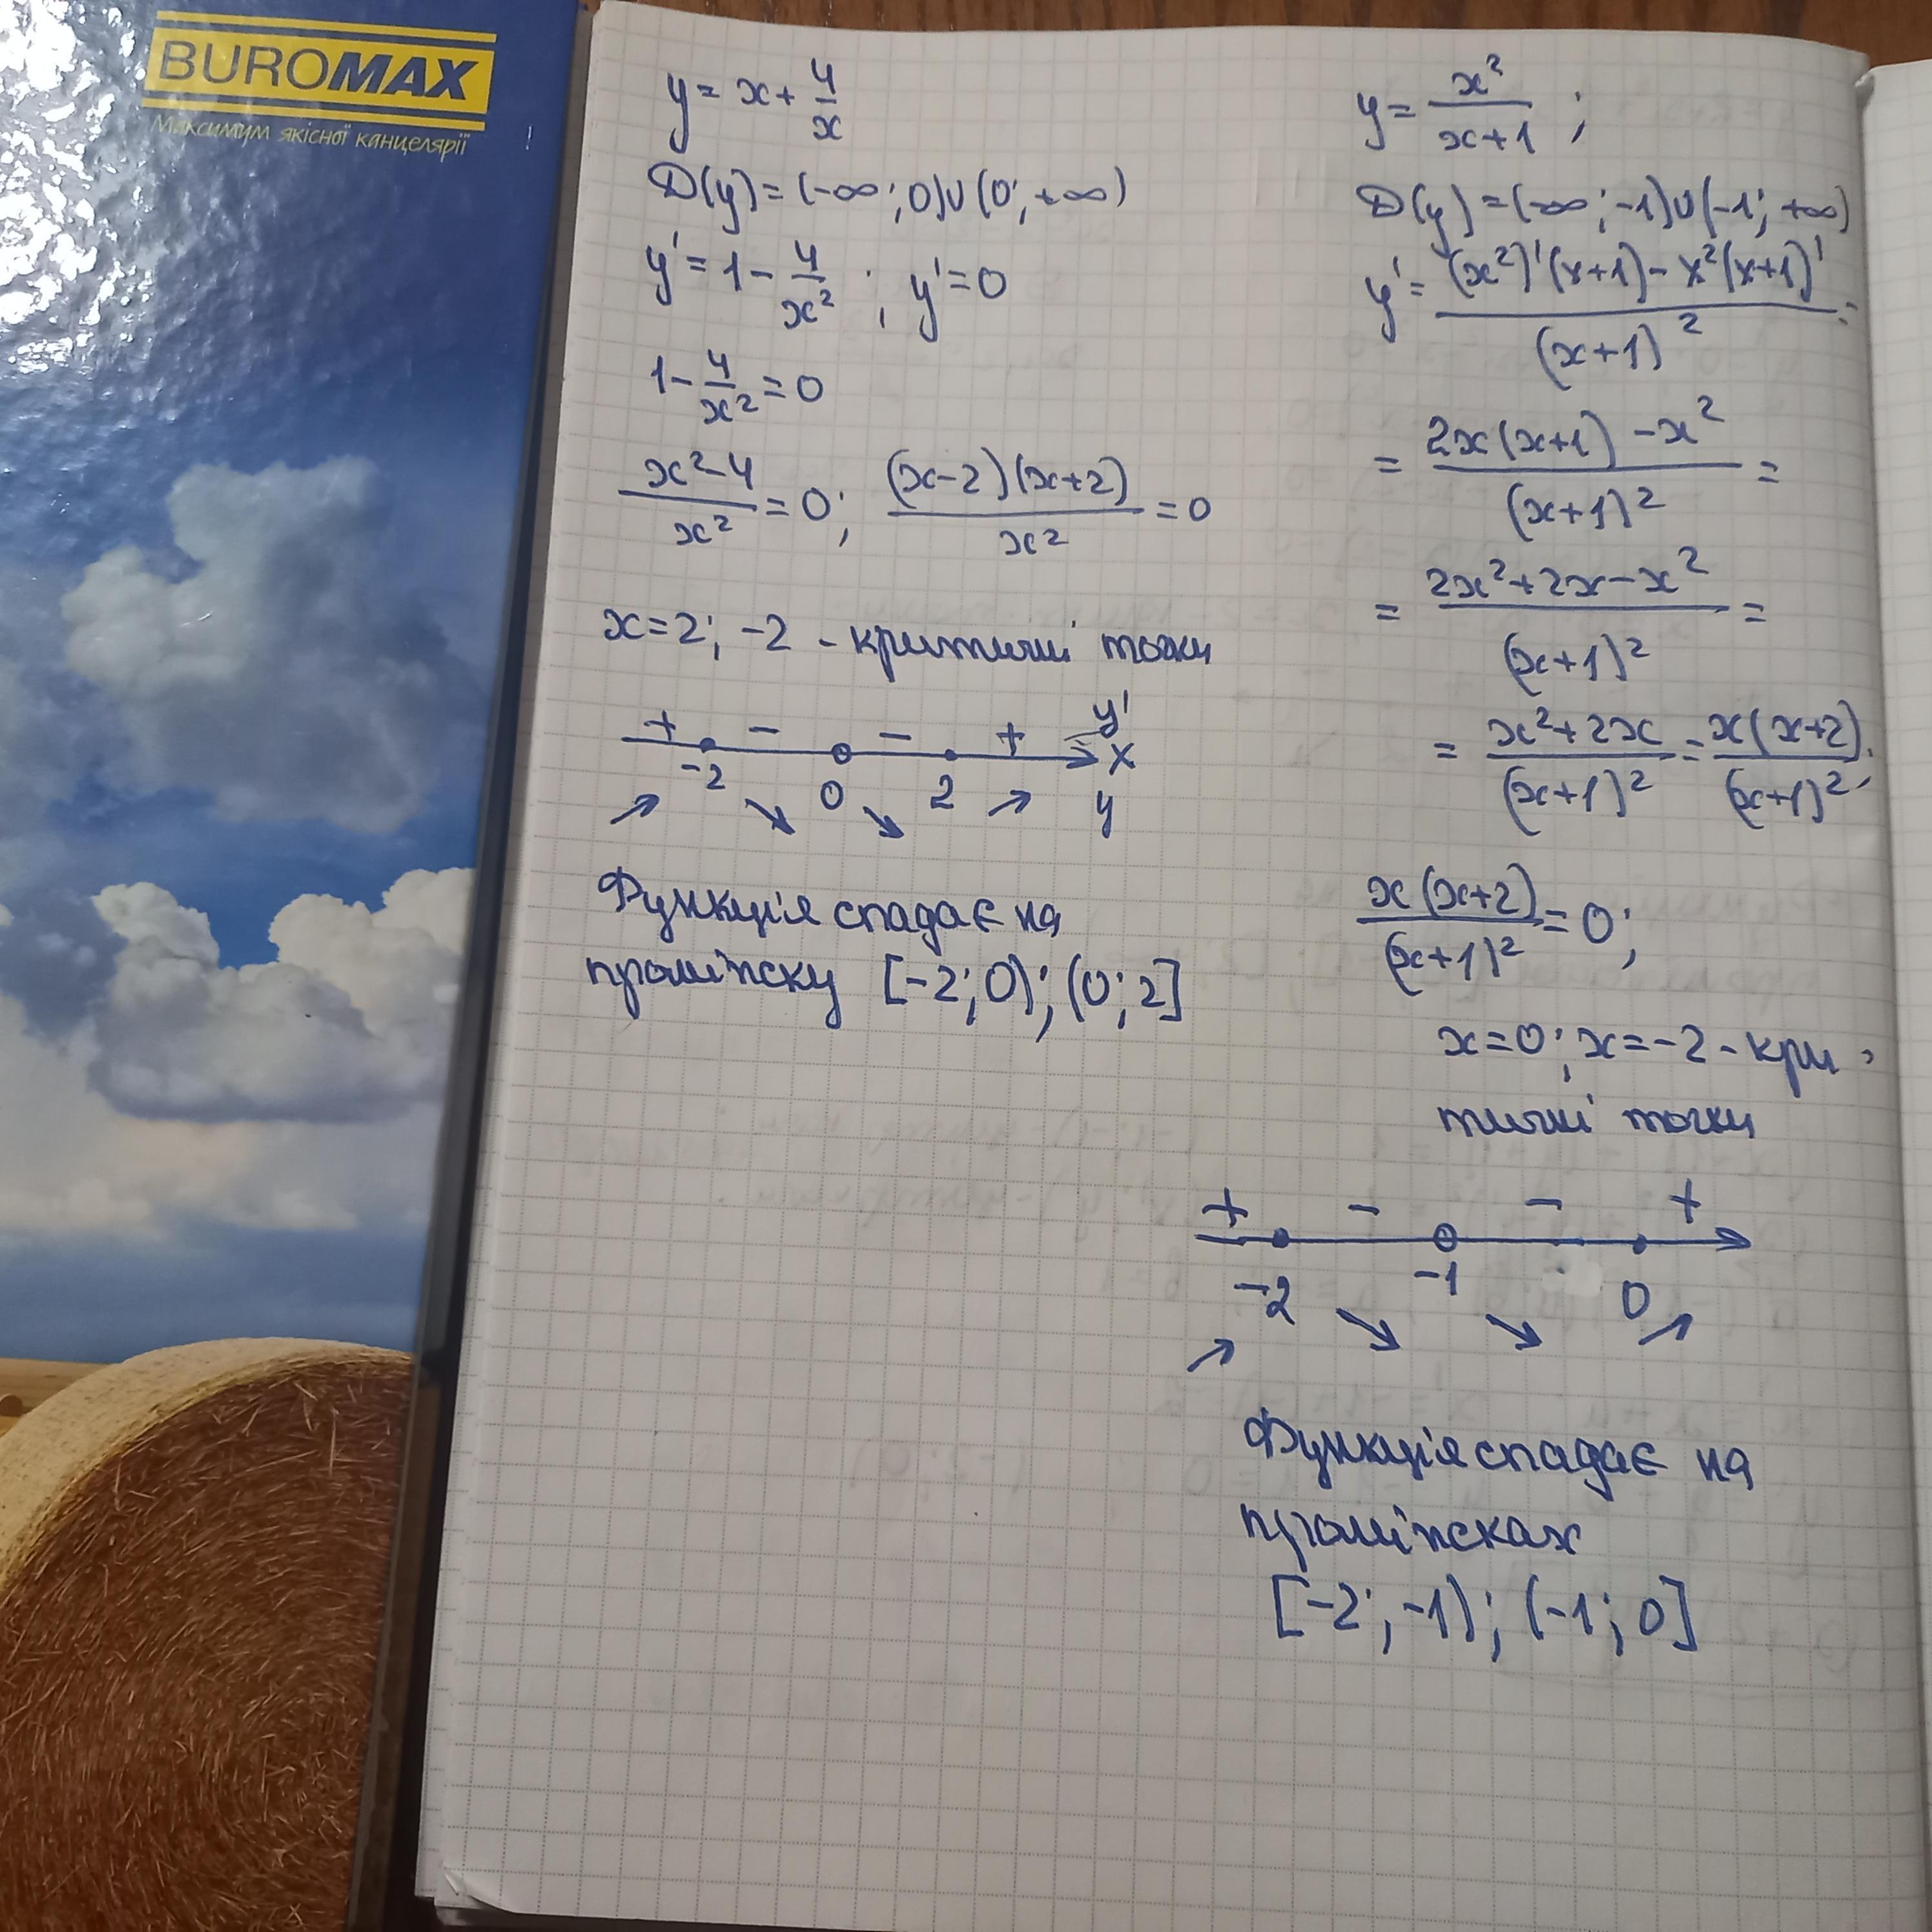 BUROMAX
Максимум якісної канцелярії
y = x + 4/x
D(y) = (-∞; 0)∪(0; +∞)
y' = 1 - 4/x² ; y' = 0
1 - 4/x² = 0
(x² - 4)/x² = 0; (x-2)(x+2)/x² = 0
x = 2; -2 - критичні точки
+ - - + y'
-2 0 2 x
↗ ↘ ↘ ↗ y
Функція спадає на
проміжку [-2; 0); (0; 2]
y = x²/(x+1) ;
D(y) = (-∞; -1)∪(-1; +∞)
y' = ((x²)'(x+1) - x²(x+1)')/(x+1)² =
= (2x(x+1) - x²)/(x+1)² =
= (2x² + 2x - x²)/(x+1)² =
= (x² + 2x)/(x+1)² = x(x+2)/(x+1)² ;
x(x+2)/(x+1)² = 0;
x = 0; x = -2 - кри-
тичні точки
+ - - +
-2 -1 0
↗ ↘ ↘ ↗
Функція спадає на
проміжках
[-2; -1); (-1; 0]